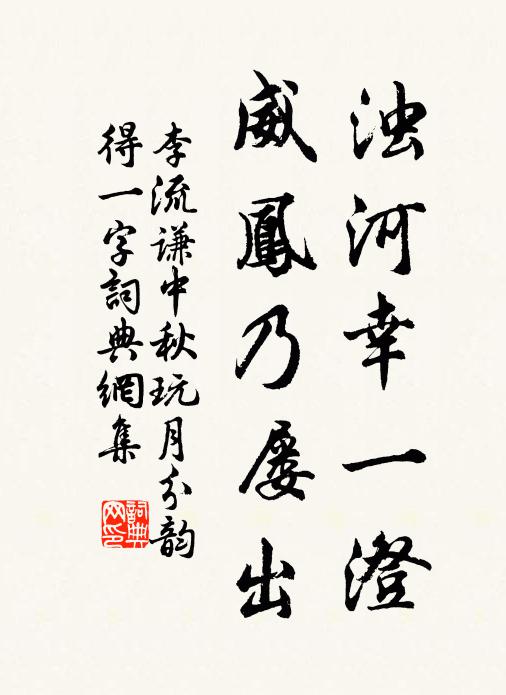 浊河幸一澄
威鳳乃屡出
李流谦中秋玩月分韵
得一字詞典網集
詞典网印